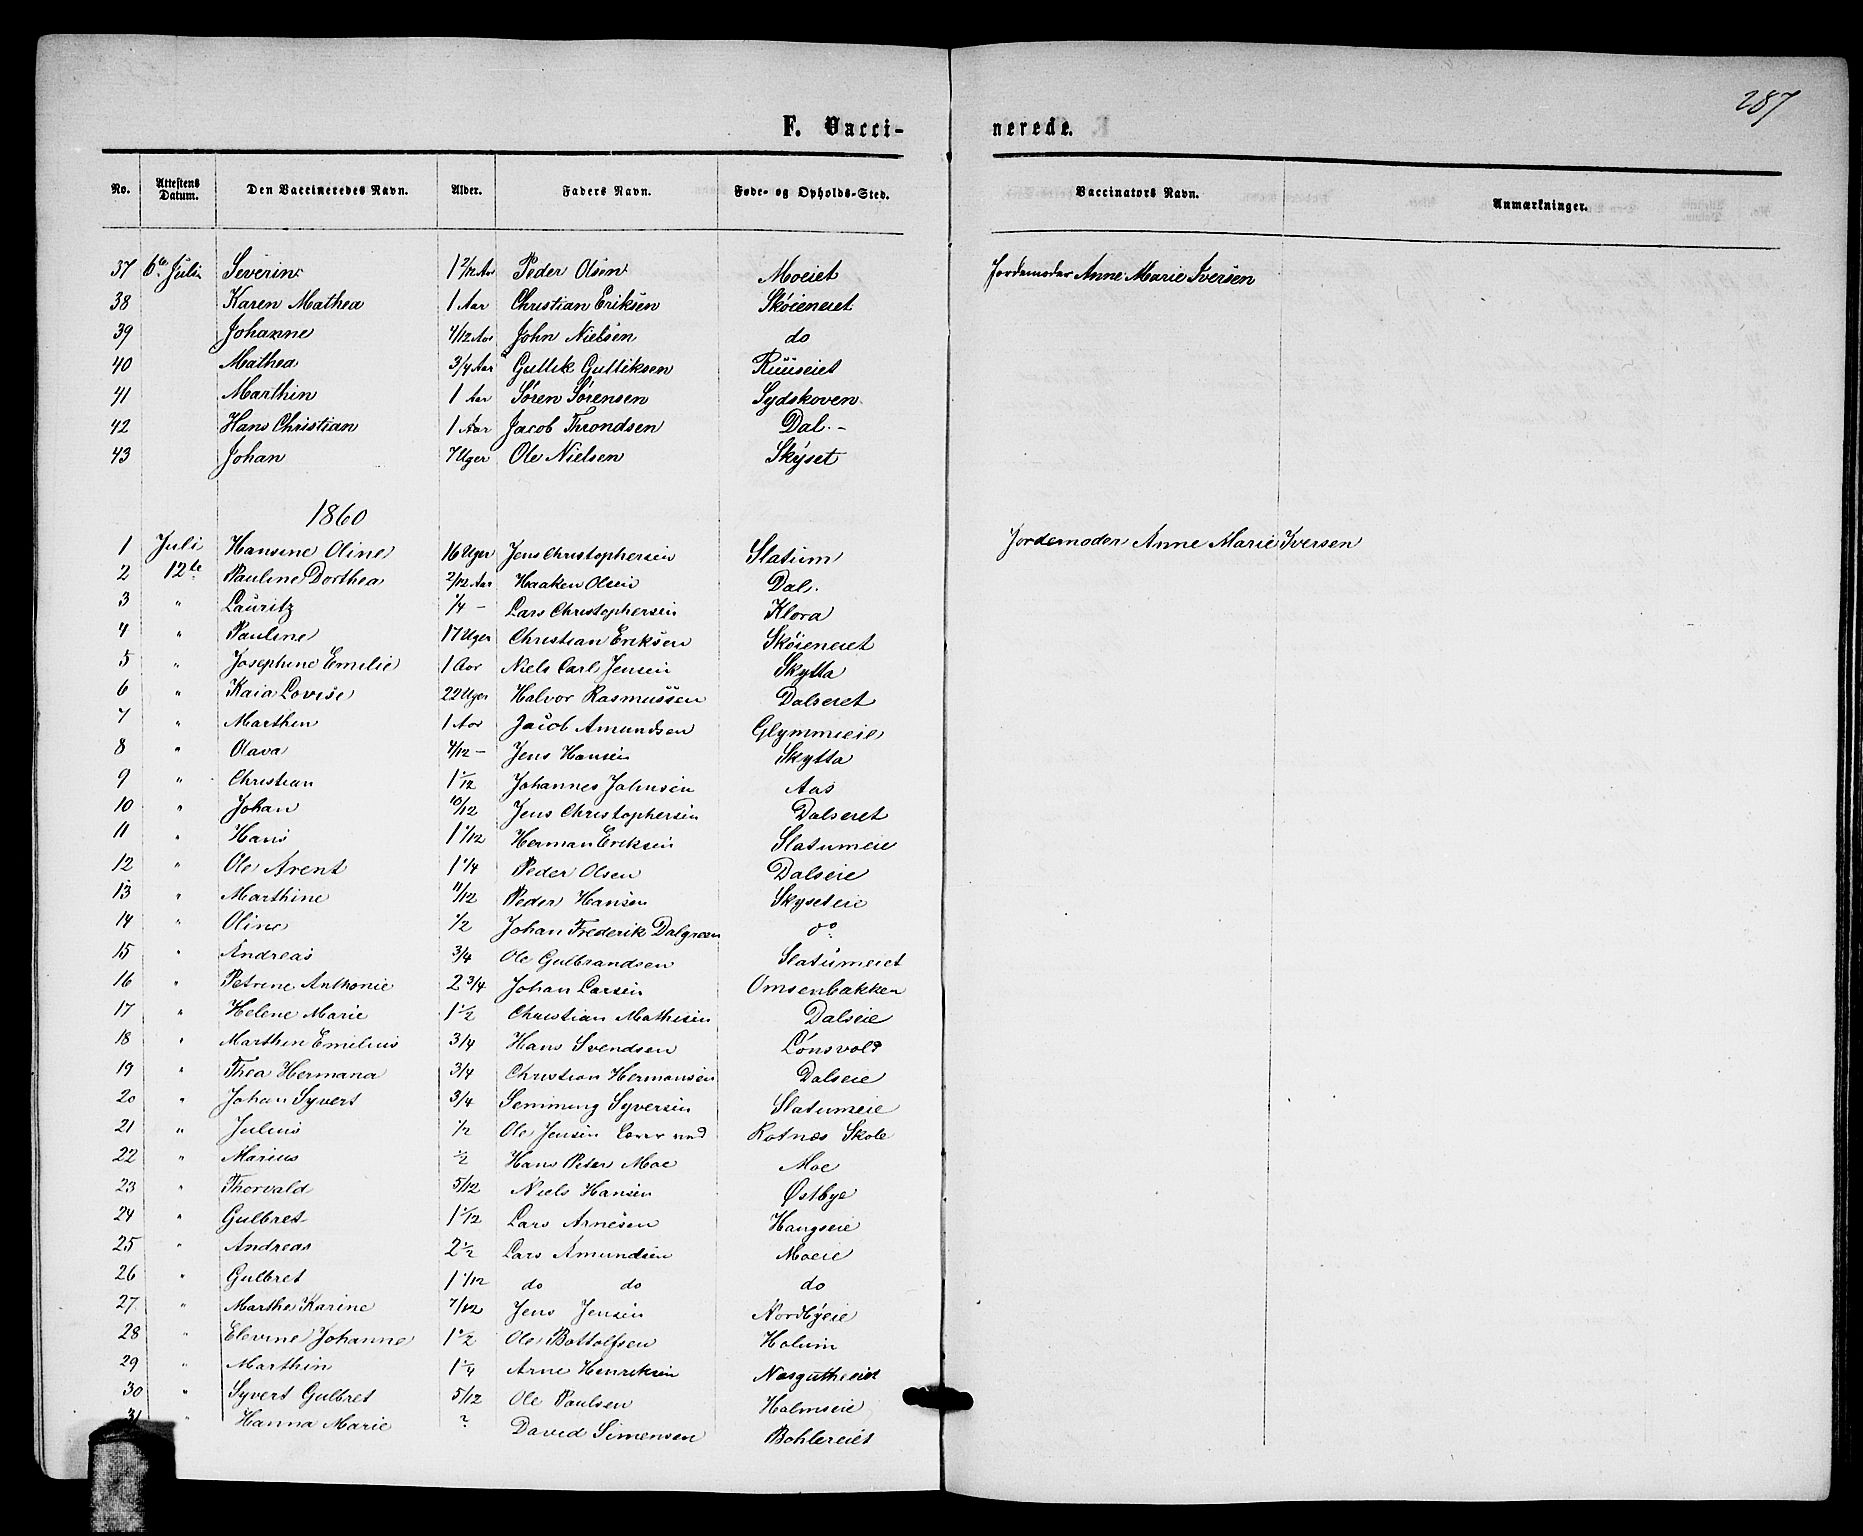 287
F. Vacci- nerede.
No. Attestens Datum. Den Vaccineredes Navn. Alder. Faders Navn. Føde- og Opholds-Sted. Vaccinators Navn. Anmærkninger.
37 6te Juli Severin 1 2/12 Aar Peder Olsen Moeiet Jordemoder Anne Marie Iversen
38 Karen Mathea 1 Aar Christian Eriksen Skøieneiet
39 Johanne 4/12 Aar John Nielsen do
40 Mathea 3/4 Aar Gullik Gulliksen Ruuseiet
41 Marthin 1 Aar Søren Sørensen Sydskoven
42 Hans Christian 1 Aar Jacob Throndsen Dal.-
43 Johan 7 Uger Ole Nielsen Skyset
1860
1 Juli Hansine Oline 16 Uger Jens Christophersen Slatum Jordemoder Anne Marie Iversen
2 12te Pauline Dorthea 2/12 Aar Haaken Olsen Dal.
3 " Lauritz 1/4 - Lars Christophersen Klora
4 " Pauline 17 Uger Christian Eriksen Skøieneiet
5 " Josephine Emilie 1 Aar Niels Carl Jensen Skytta
6 " Kaia Lovise 22 Uger Halvor Rasmussen Dalseiet
7 " Marthin 1 Aar Jacob Amundsen Glymmeie
8 " Olava 4/12 - Jens Hansen Skytta
9 " Christian 1 1/12 Johannes Johnsen Aas
10 " Johan 10/12 Jens Christophersen Dalseiet
11 " Hans 1 1/12 Herman Eriksen Slatumeie
12 " Ole Arent 1 1/4 Peder Olsen Dalseie
13 " Marthine 11/12 Peder Hansen Skyseteie
14 " Oline 1/2 Johan Frederik Dalgreen do
15 " Andreas 3/4 Ole Gulbrandsen Slatumeiet
16 " Petrine Anthonie 2 3/4 Johan Larsen Omsenbakken
17 " Helene Marie 1 1/2 Christian Mathisen Dalseie
18 " Marthin Emilius 3/4 Hans Svendsen Lønsvold
19 " Thea Hermana 3/4 Christian Hermansen Dalseie
20 " Johan Syvert 3/4 Semming Syversen Slatumeie
21 " Julius 1/2 Ole Jensen Lærer ved Rotnæs Skole
22 " Marius 1/2 Hans Peter Moe Moe
23 " Thorvald 5/12 Niels Hansen Østbye
24 " Gulbret 1 1/12 Lars Arnesen Haugseie
25 " Andreas 2 1/2 Lars Amundsen Moeie
26 " Gulbret 1 1/12 do do do
27 " Marthe Karine 7/12 Jens Jensen Nordbyeie
28 " Elevine Johanne 1 1/2 Ole Bottolfsen Holum
29 " Marthin 1 1/4 Arne Henriksen
30 " Syvert Gulbret 5/12 Ole Paulsen Holmseie
31 " Hanna Marie ? David Simensen Bohlereiet